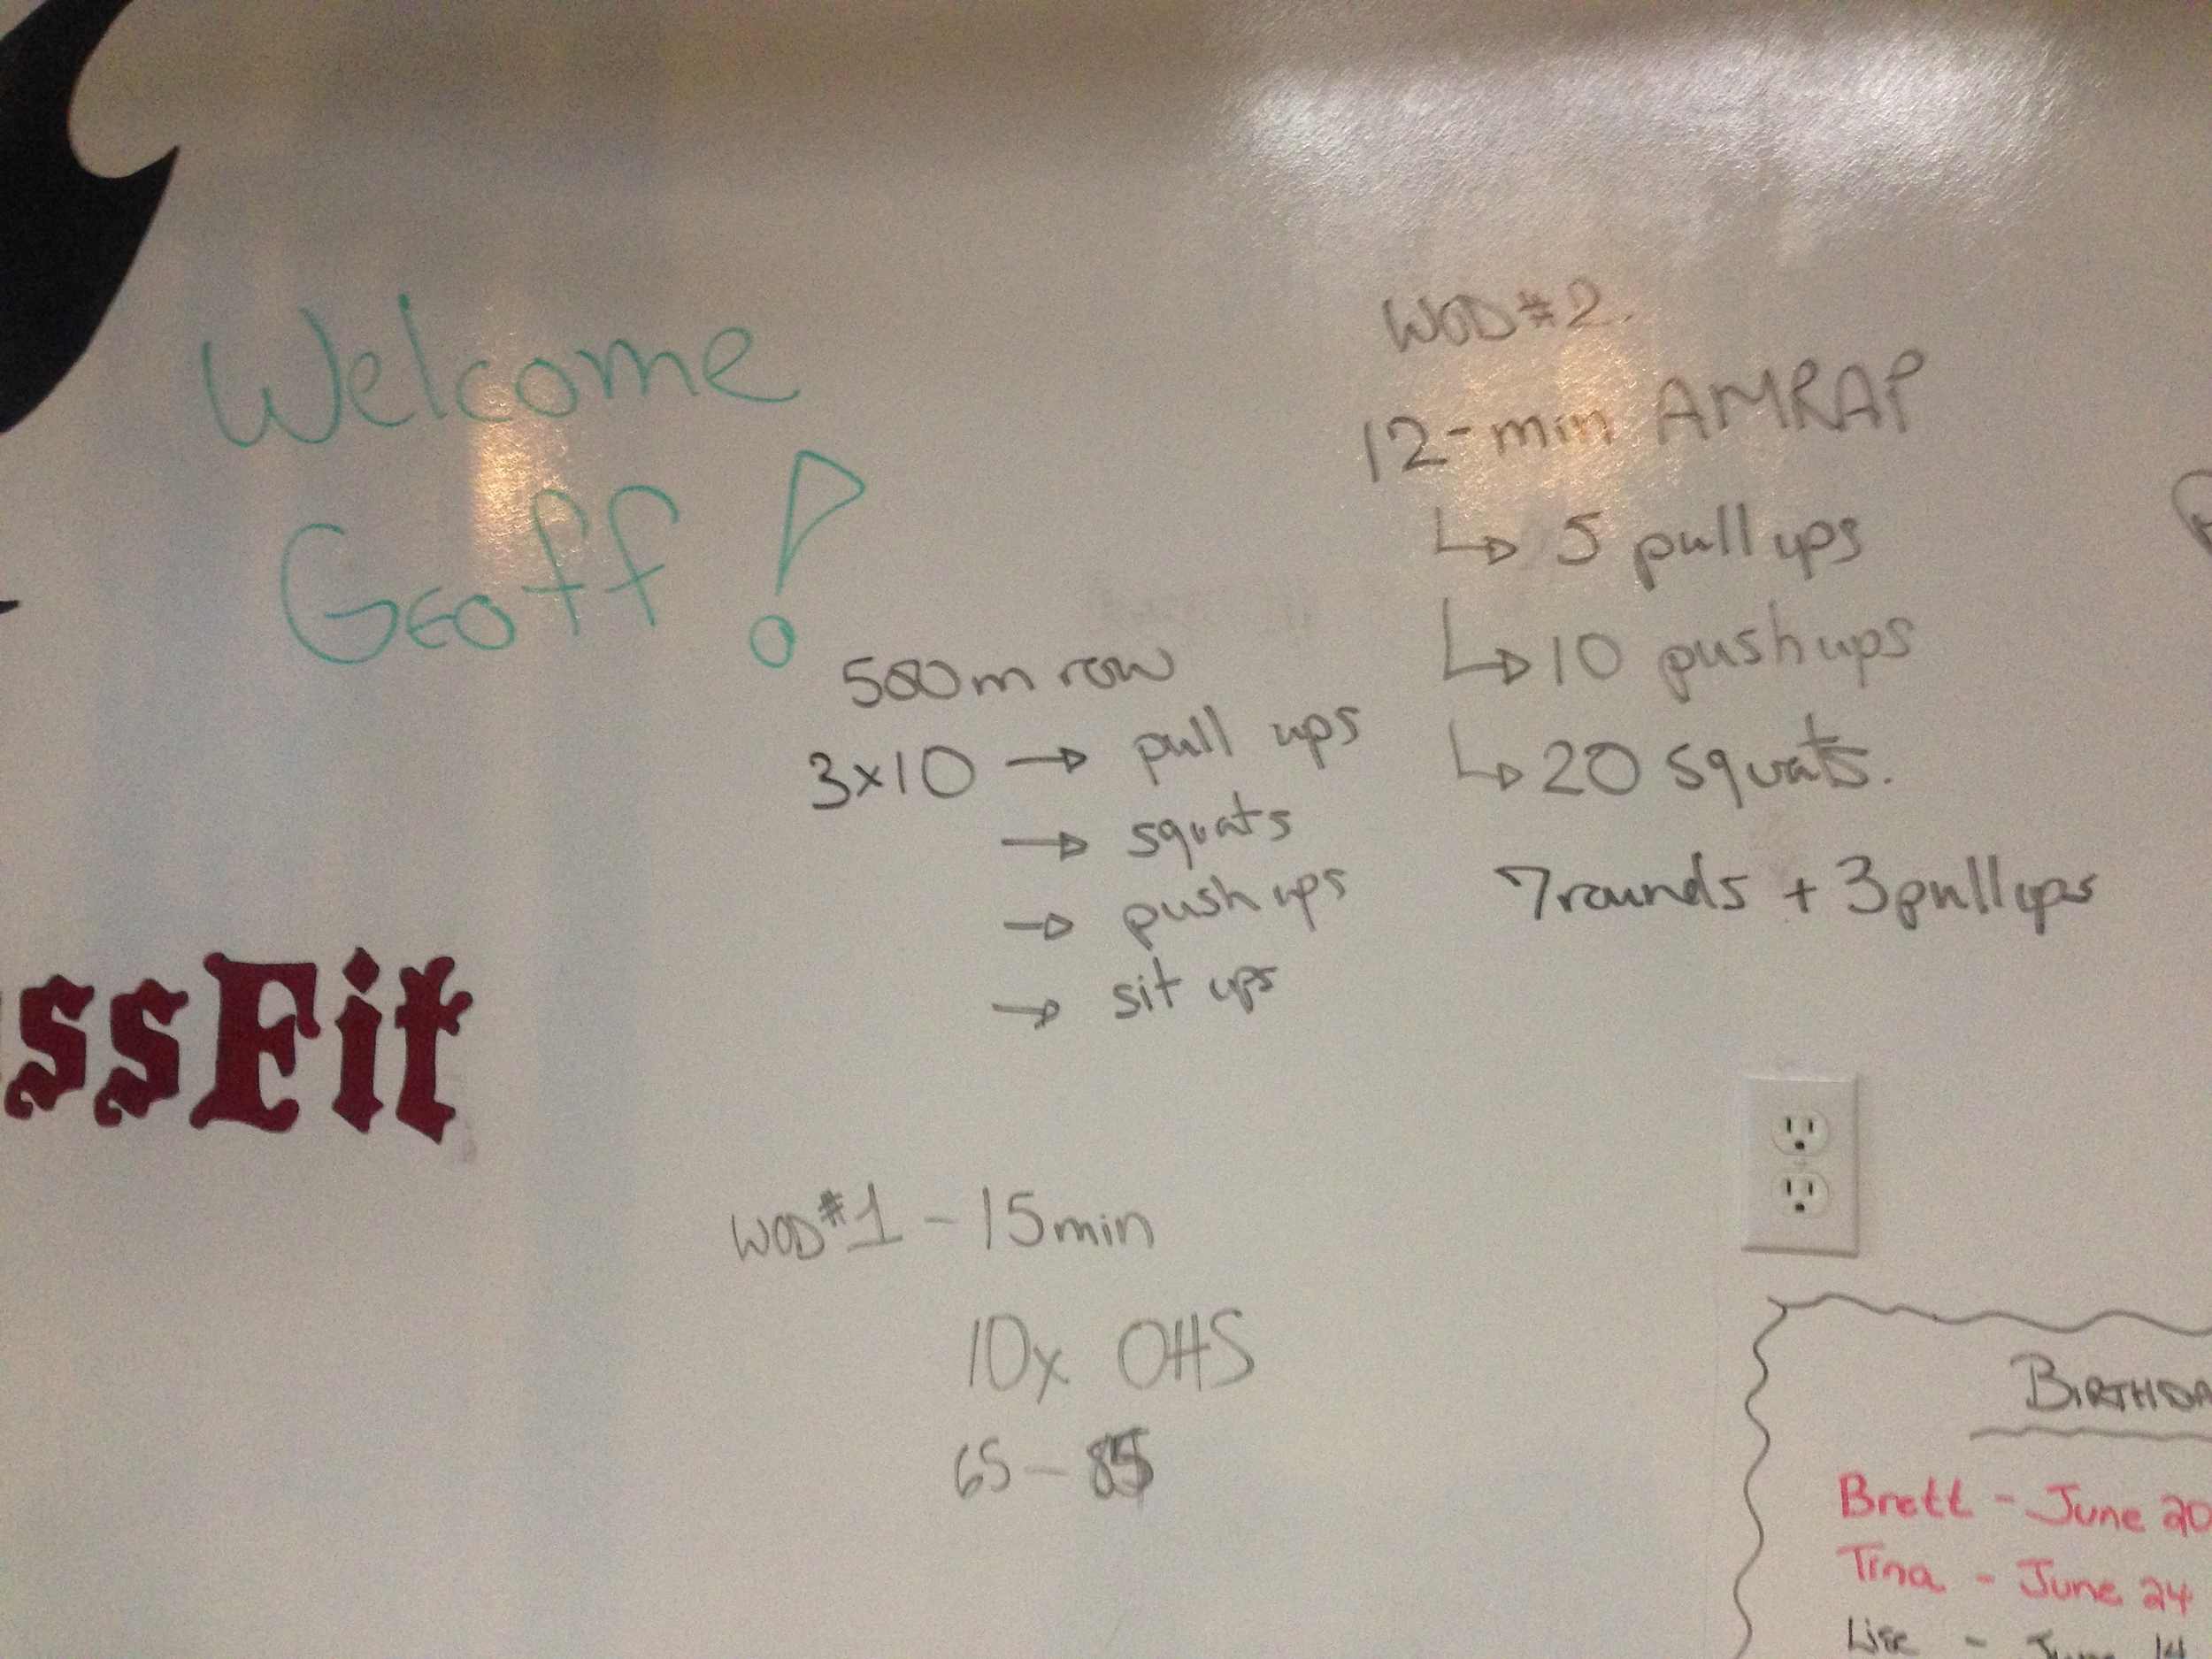 Welcome
Geoff!
500m row
3x10 → pull ups
→ squats
→ push ups
→ sit ups
WOD #2.
12-min AMRAP
↳ 5 pull ups
↳ 10 push ups
↳ 20 squats.
7 rounds + 3 pull ups
ssFit
WOD #1 - 15min
10x OHS
65 - 85
BIRTHDA
Brett - June 20
Tina - June 24
Lise - June 14